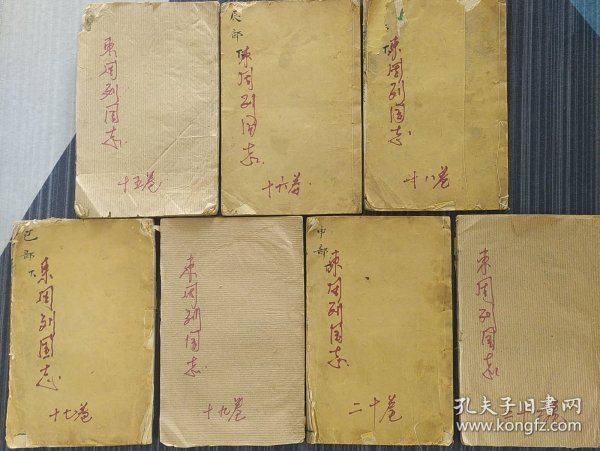 東周列国志
十五卷
辰部
東周列国志
十六卷
東周列国志
十八卷
部下
東周列国志
十七卷
東周列国志
十九卷
中部
東周列国志
二十卷
東周列国志
孔夫子旧书网
www.kongfz.com